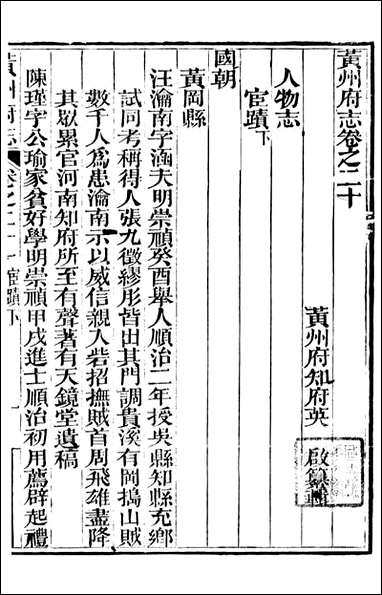 黃州府志卷之二十
黃州府知府英啟纂輯
人物志
宦蹟下
國朝
黃岡縣
汪瀹南字涵夫明崇禎癸酉舉人順治二年授吳縣知縣充鄉
試同考稱得人張九徵繆彤皆出其門調貴溪有岡搗山賊
數千人爲患瀹南示以威信親入砦招撫賊首周飛雄盡降
其眾累官河南知府所至有聲著有天鏡堂遺稿
陳瑾宇公瑜家貧好學明崇禎甲戌進士順治初用薦辟起禮
黃州府志
卷之二十
宦蹟下
一